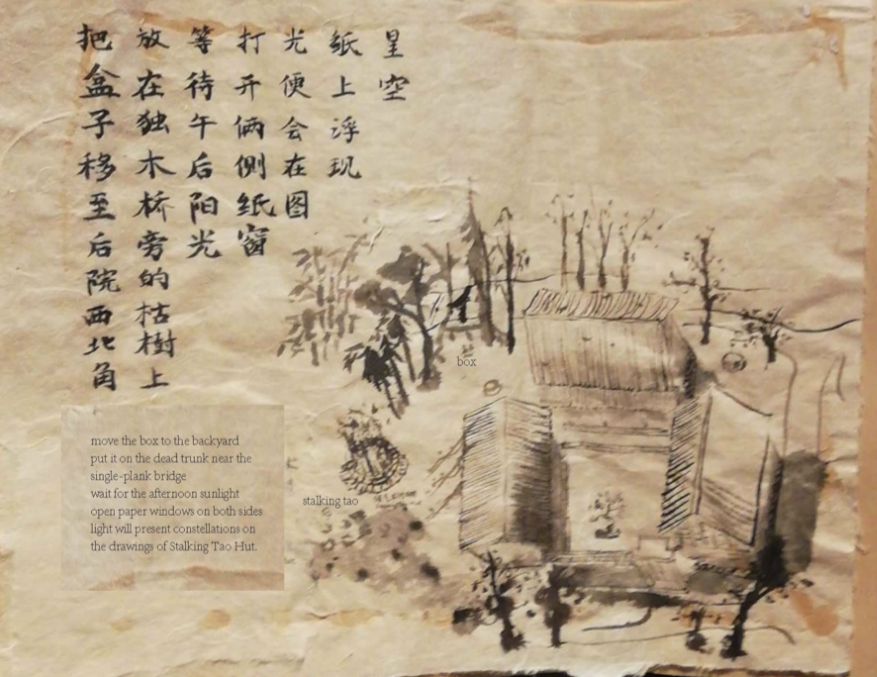 把盒子移至后院西北角
放在独木桥旁的枯樹上
等待午后阳光
打开俩侧纸窗
光便会在图
纸上浮现
星空
box
stalking tao
move the box to the backyard
put it on the dead trunk near the
single-plank bridge
wait for the afternoon sunlight
open paper windows on both sides
light will present constellations on
the drawings of Stalking Tao Hut.